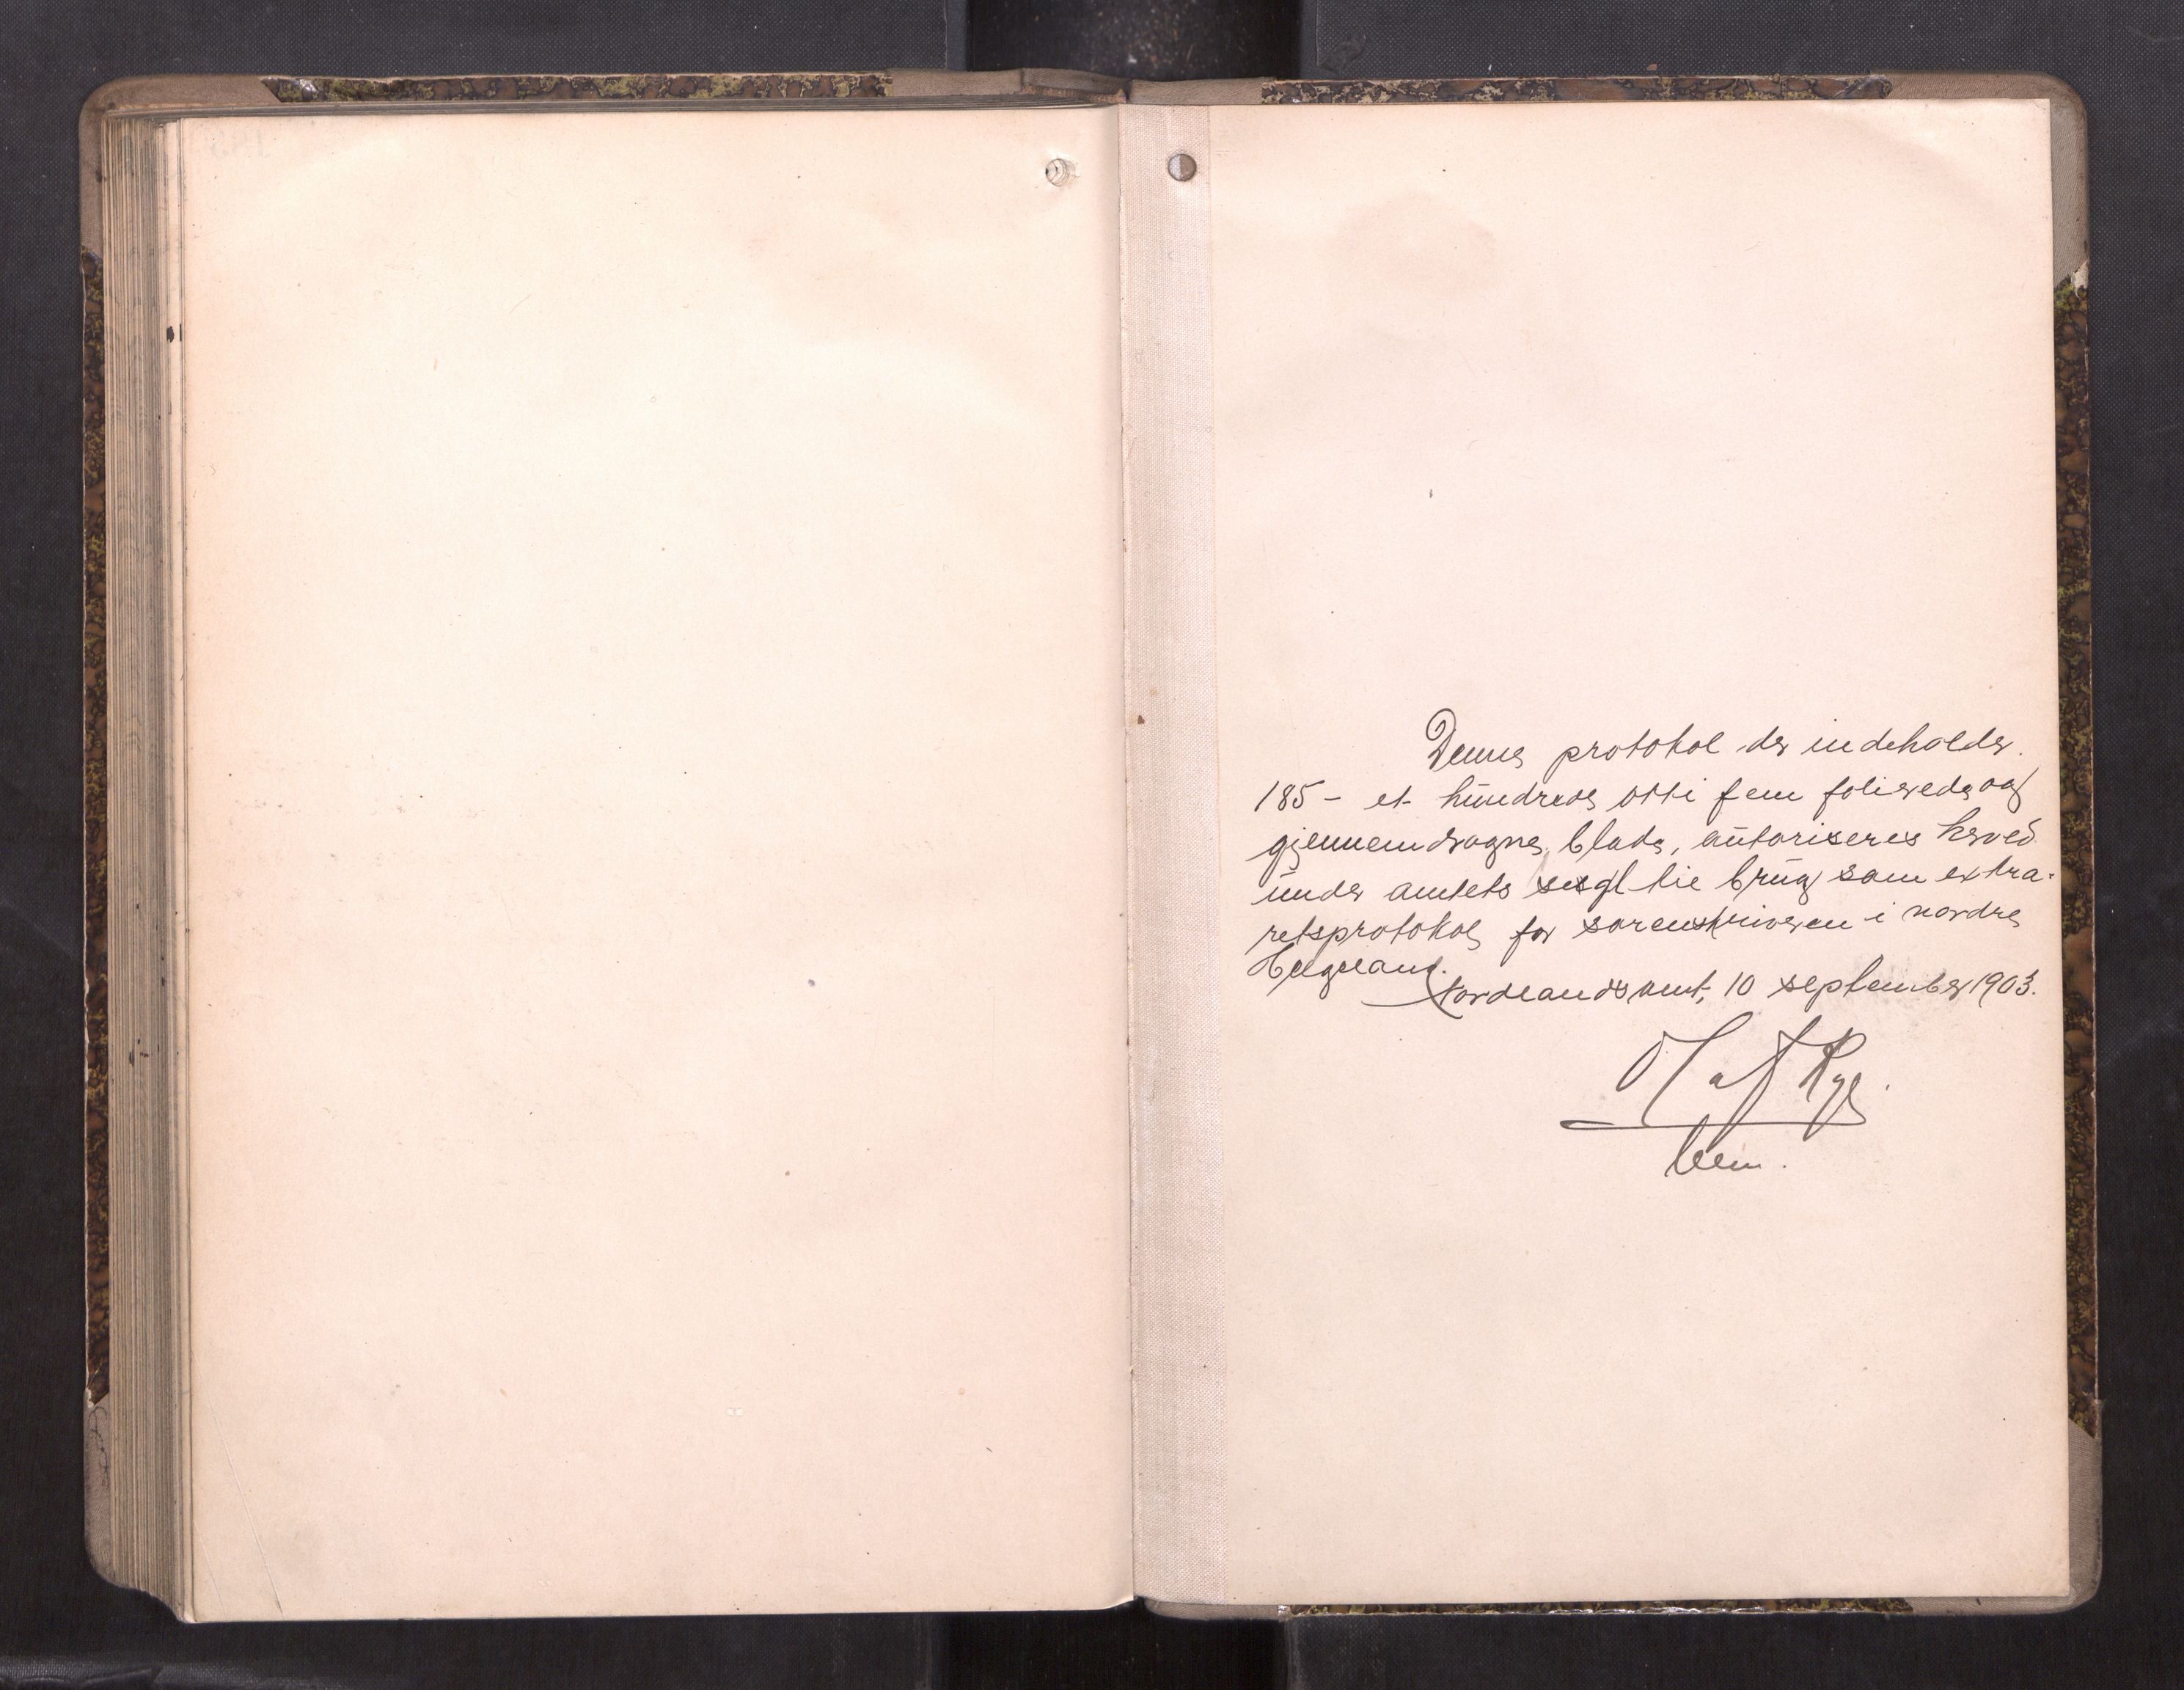 Denne protokol der indeholder
185 - et hundrede otti fem folierede og
gjennemdragne blade, autoriseres herved
under amtets segl til brug som extra-
retsprotokol for sorenskriveren i nordre
Helgeland.
Nordlands amt, 10 september 1903.
Olaf Rye